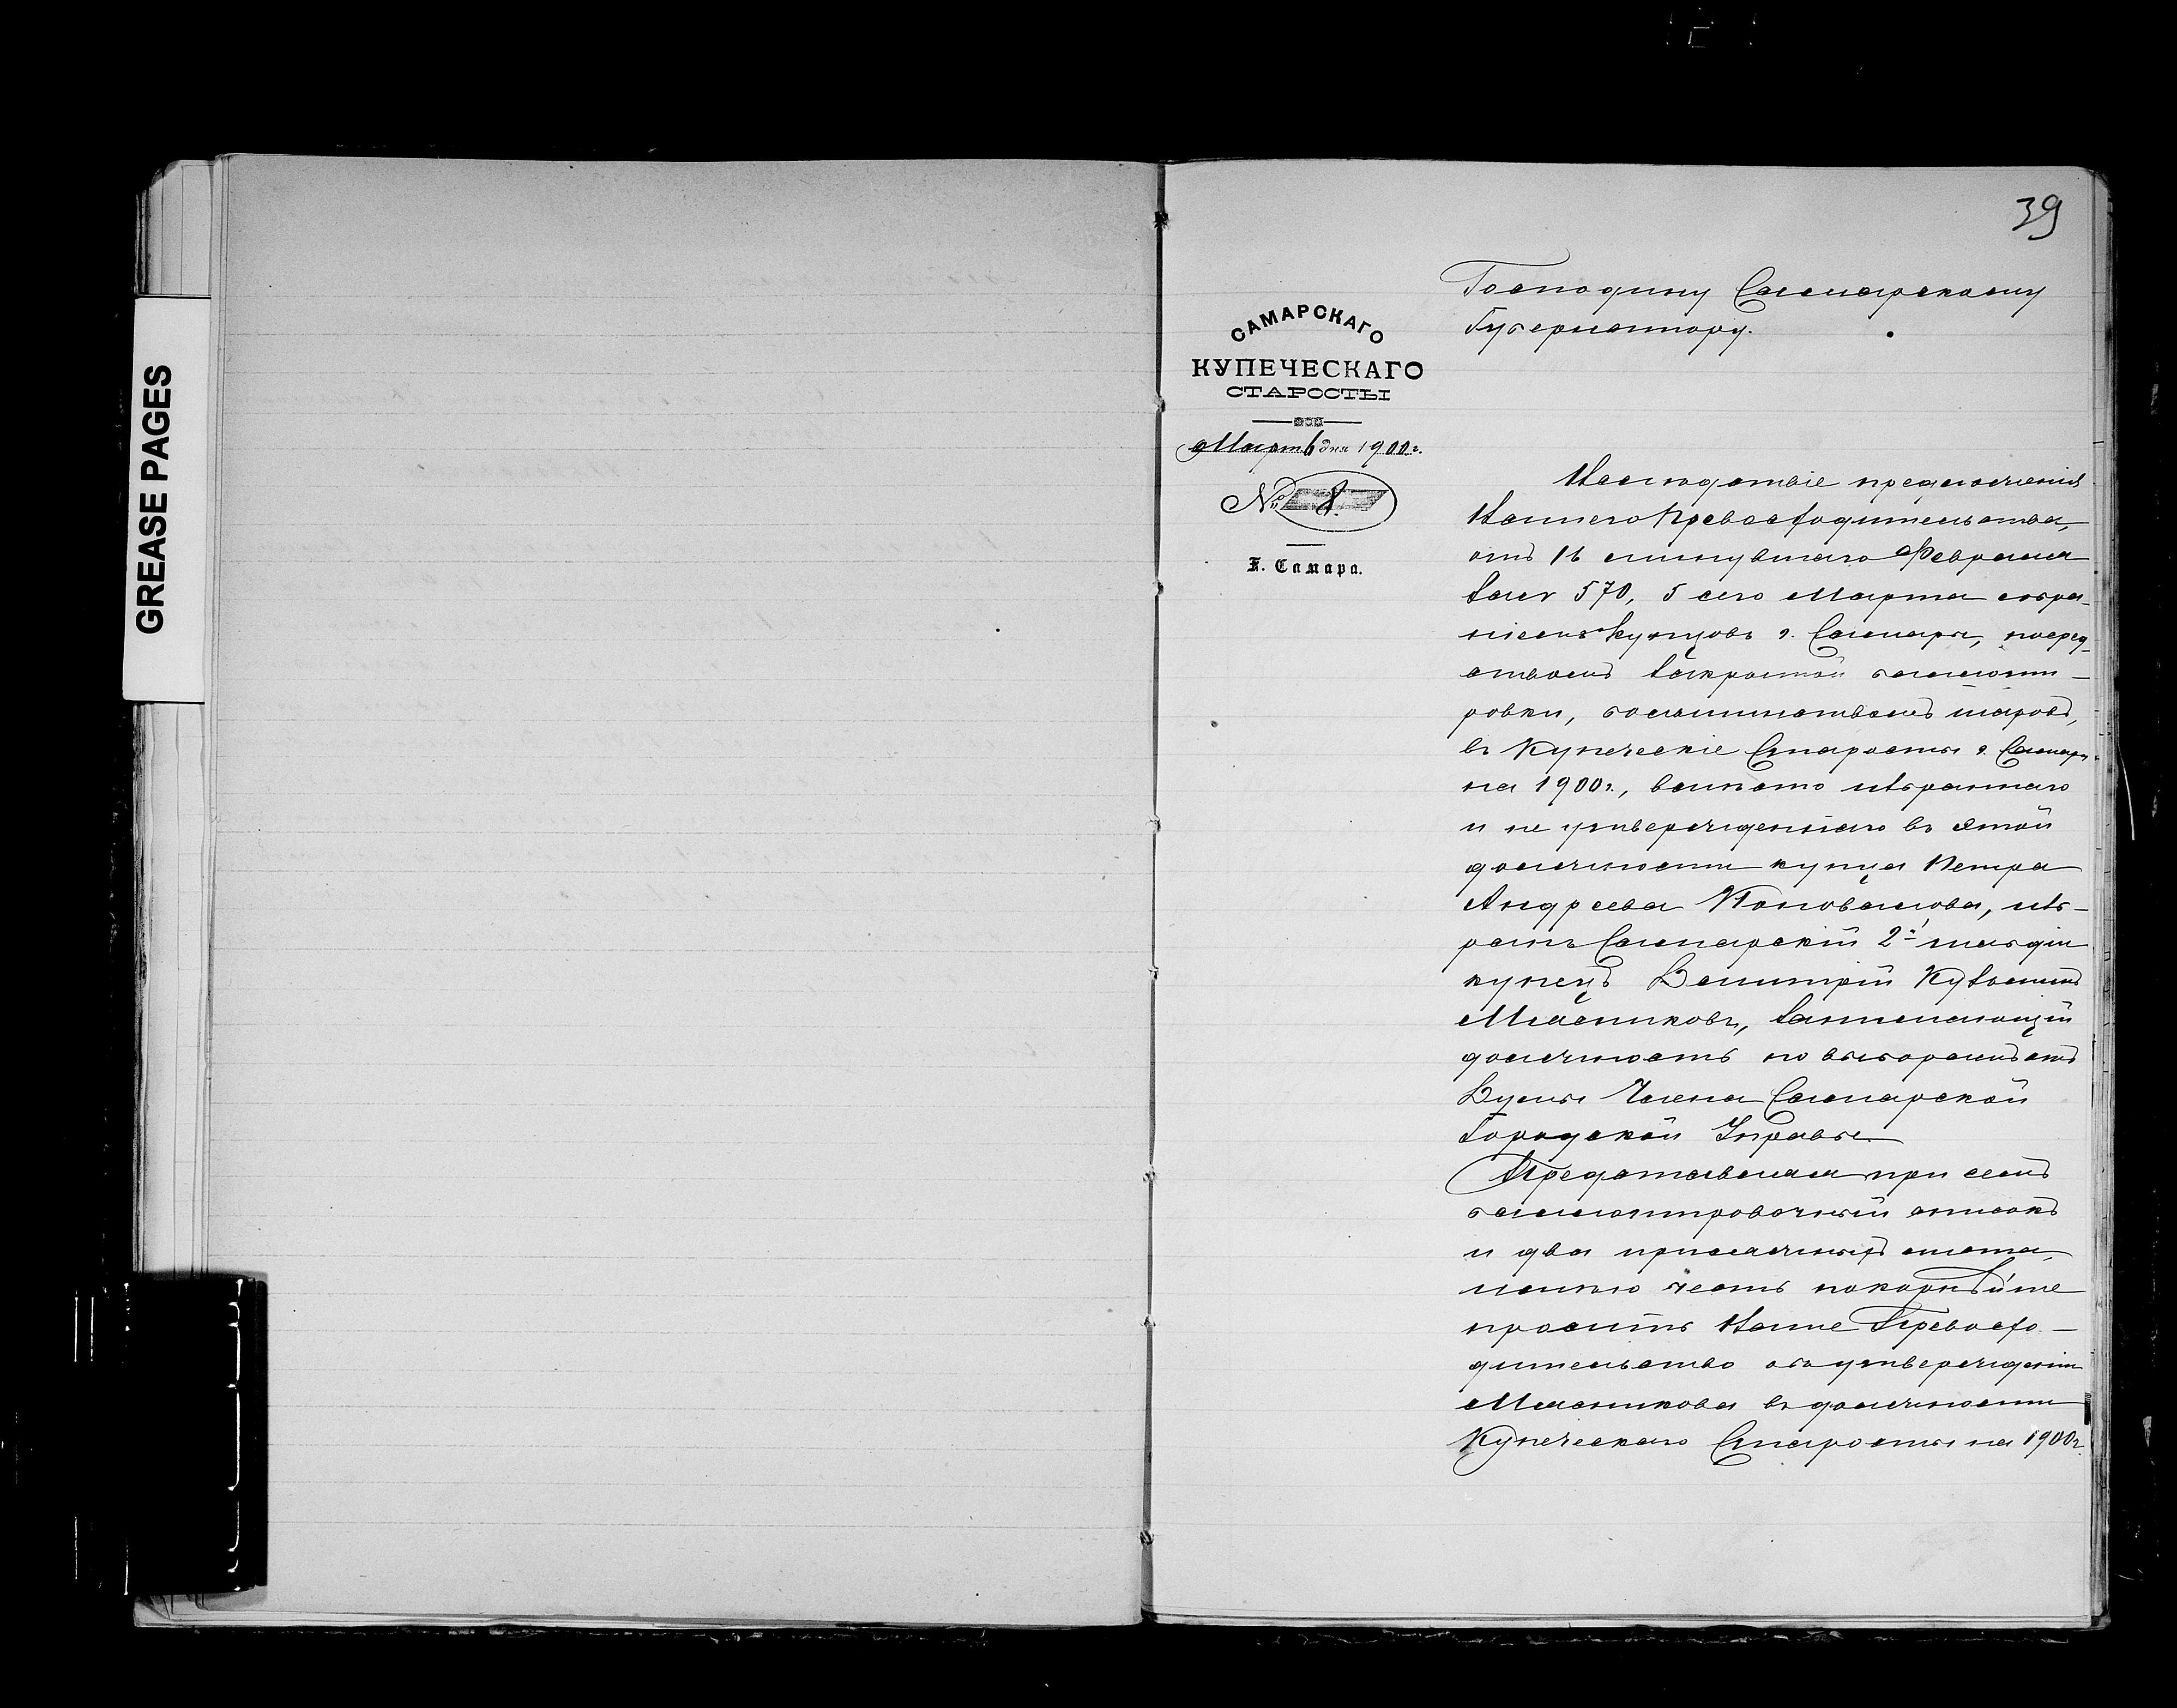 GREASE PAGES
39
САМАРСКАГО
КУПЕЧЕСКАГО
СТАРОСТЫ
Марта 6 дня 1900 г.
№ 8.
Г. Самара.
Господину Самарскому
Губернатору.
Вслѣдствіе предложенія
Вашего Превосходительства,
отъ 16 минувшаго Февраля
за № 570, 5 сего Марта собра-
ніемъ Купцовъ г. Самары, посред-
ствомъ закрытой баллоти-
ровки, большинствомъ шаровъ,
въ Купеческіе Старосты г. Самары
на 1900 г., вмѣсто избраннаго
и не утвержденнаго въ этой
должности купца Петра
Андреева Коновалова, изб-
ранъ Самарскій 2й гильдіи
купецъ Дмитрій Кузьмичъ
Мясниковъ, занимающій
должность по выборамъ отъ
Думы Члена Самарской
Городской Управы.
Представляя при семъ
баллотировочный списокъ
и два присяжныхъ листа,
имѣю честь покорнѣйше
просить Ваше Превосхо-
дительство объ утвержденіи
Мясникова въ должности
Купеческаго Старосты на 1900 г.